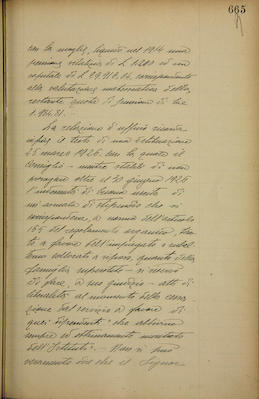 665
con la moglie, liquidò nel 1914 una
pensione vitalizia di L. 1.200 ed un
capitale di L. 29.912.04, corrispondente
alla valutazione matematica della
restante quota di pensione di lire
1.984.81. -
La relazione d'ufficio
il testo di una deliberazione
25 marzo 1926, con la quale il
Consiglio - mentre stabilì di non
prorogare oltre il 30 giugno 1926
di
una annata di stipendio che si
corrispondeva, a norma dell'articolo
165 del regolamento organico, tan-
to a favore dell'impiegato o subal-
terno collocato a riposo, quanto della
famiglia superstite - si riservò
di fare, a suo giudizio - atti di
liberalità al momento della cessa-
zione dal servizio a favore di
quei dipendenti "che abbiano
sempre ed ottimamente meritato
dell'Istituto". - Non si può
veramente dire che il Signor